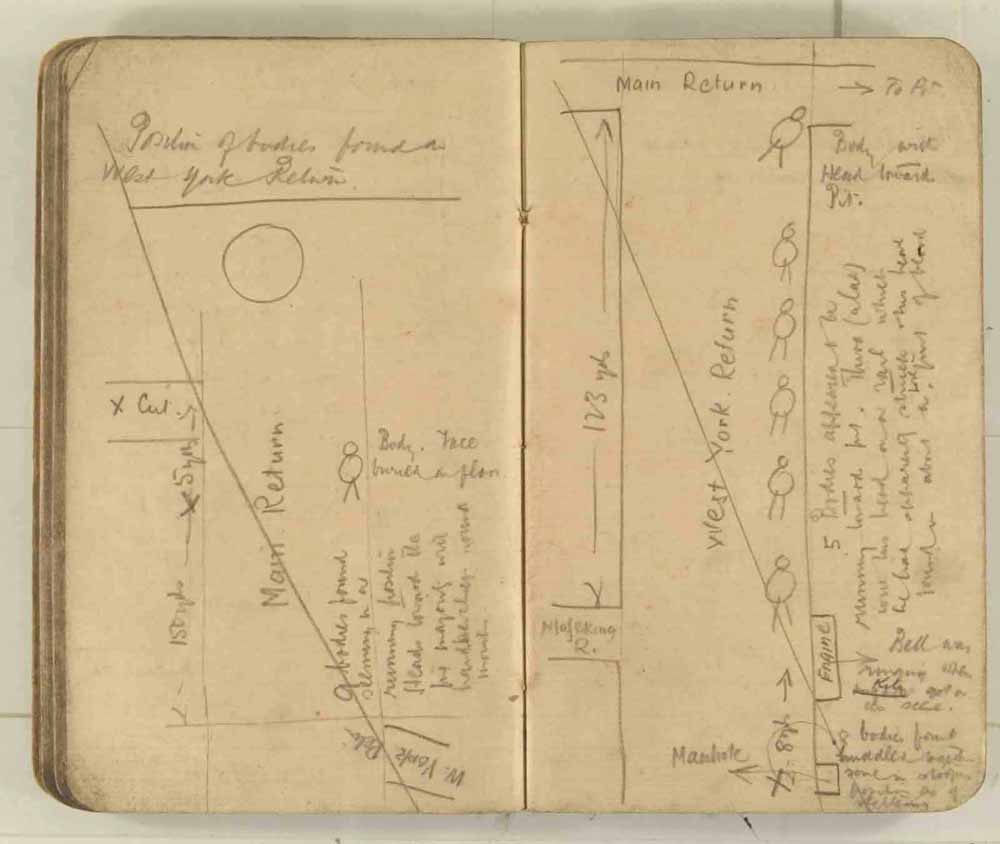 Position of bodies found in
West York Return.
X Cut.
5 yds
150 yds
Main Return
Body. Face
buried in floor
9 bodies found
seeming in a
running position
Heads toward the
pit majority with
handkerchiefs round
mouth
W. York
Main Return
→ To Pit
Body with
Head toward
Pit.
123 yds
West York Return
5 Bodies appeared to be
running toward pit. Three (a lad)
one his head on a rail which
he had apparently struck his head
found about a of blood
Mafeking
R.
Engine
Bell was
ringing when
got on
the scene.
Manhole
8 yds
8 bodies found
huddled together
some in a stooping
position as if